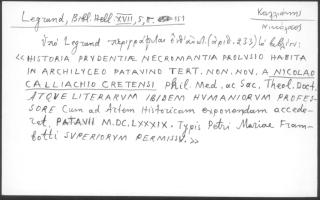 Legrand, Bibl. Hell. XVII, 5, σ. 151
Καλλιάκης
Νικόλαος
Ὑπὸ Legrand περιγράφεται (ἀριθ. 233)
«HISTORIA PRUDENTIÆ NECROMANTIA PROLUSIO HABITA
IN ARCHILYCEO PATAVINO TERT. NON. NOV. A NICOLAO
CALLIACHIO CRETENSI Phil. Med. ac Sac. Theol. Doct.
ATQUE LITERARUM IBIDEM HUMANIORUM PROFES-
SORE Cum ad Artem Historicam exponendam accede-
ret. PATAVII M.DC.LXXXIX. Typis Petri Mariae Fram-
botti SUPERIORUM PERMISSU.»